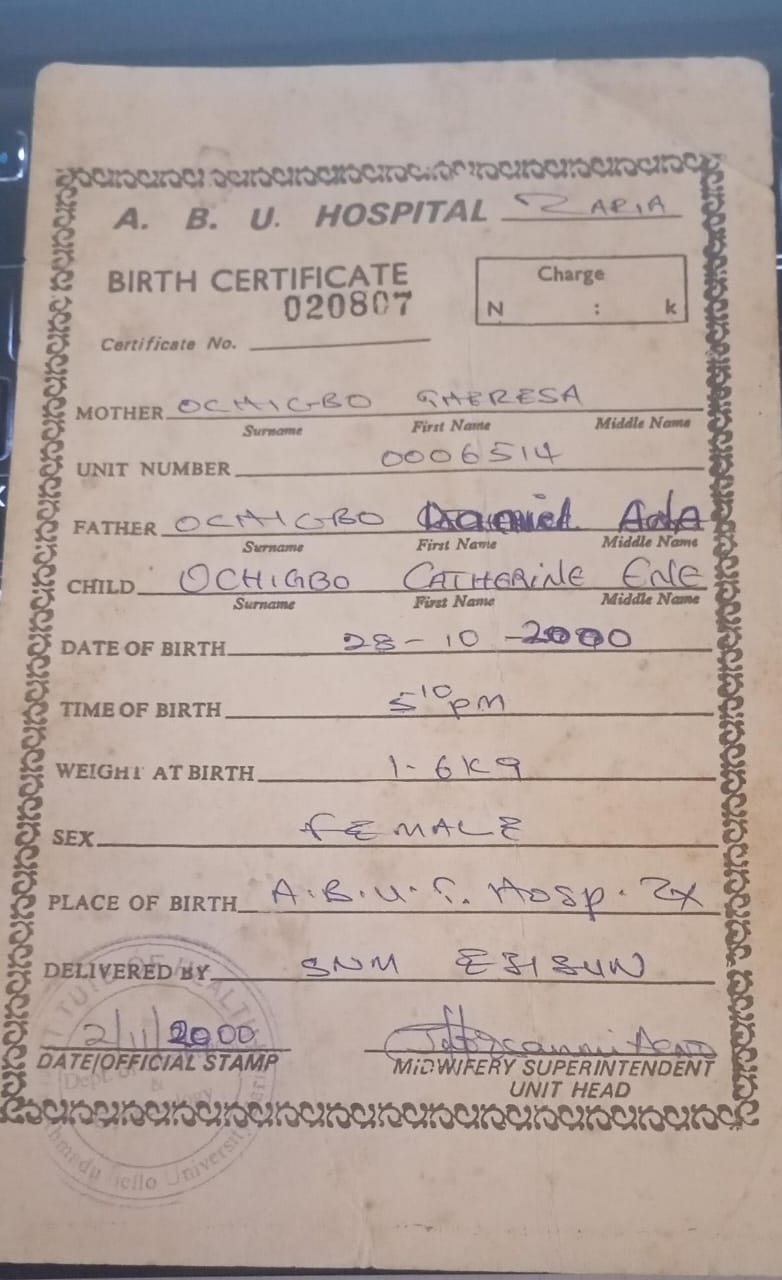 A. B. U. HOSPITAL ZARIA
BIRTH CERTIFICATE
020807
Charge
N : k
Certificate No.
MOTHER OCHIGBO THERESA
Surname First Name Middle Name
UNIT NUMBER 0006514
FATHER OCHIGBO Daniel Ada
Surname First Name Middle Name
CHILD OCHIGBO CATHERINE ENE
Surname First Name Middle Name
DATE OF BIRTH 28-10-2000
TIME OF BIRTH 5 10 pm
WEIGHT AT BIRTH 1-6Kg
SEX FEMALE
PLACE OF BIRTH A.B.U.T. Hosp. ZX
DELIVERED BY SNM
2/11/2000
DATE/OFFICIAL STAMP
MIDWIFERY SUPERINTENDENT
UNIT HEAD